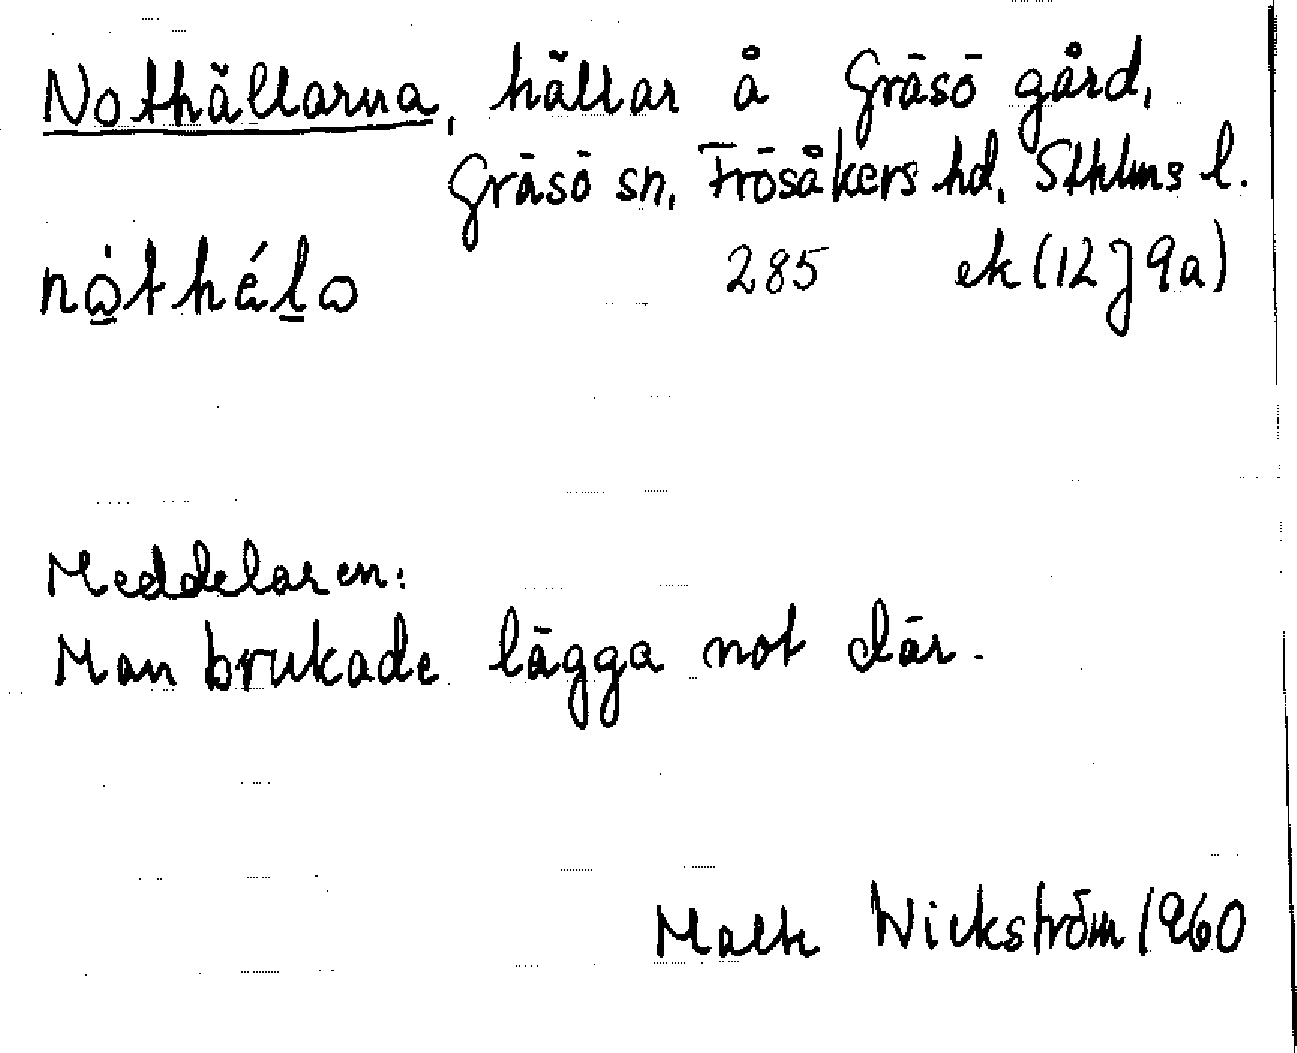 Nothällarna, hällar å Gräsö gård,
Gräsö sn, Frösåkers hd, Sthlms l.
nòthélo 285 ek (12J9a)
Meddelaren:
Man brukade lägga not där.
Wickström 1960